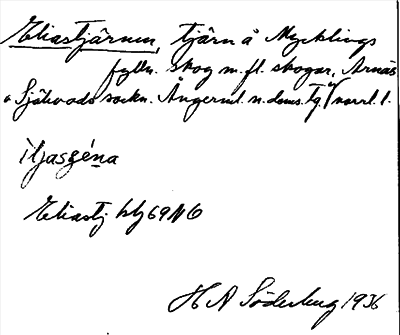 Eliastjärnen, tjärn å Mycklings
fylln. skog m. fl. skogar, Arnäs
o Själevads sockn. Ångerml. n. doms. Tg. Y norrl. l.
Eliastj blj 69 NO
H A Söderberg 1936